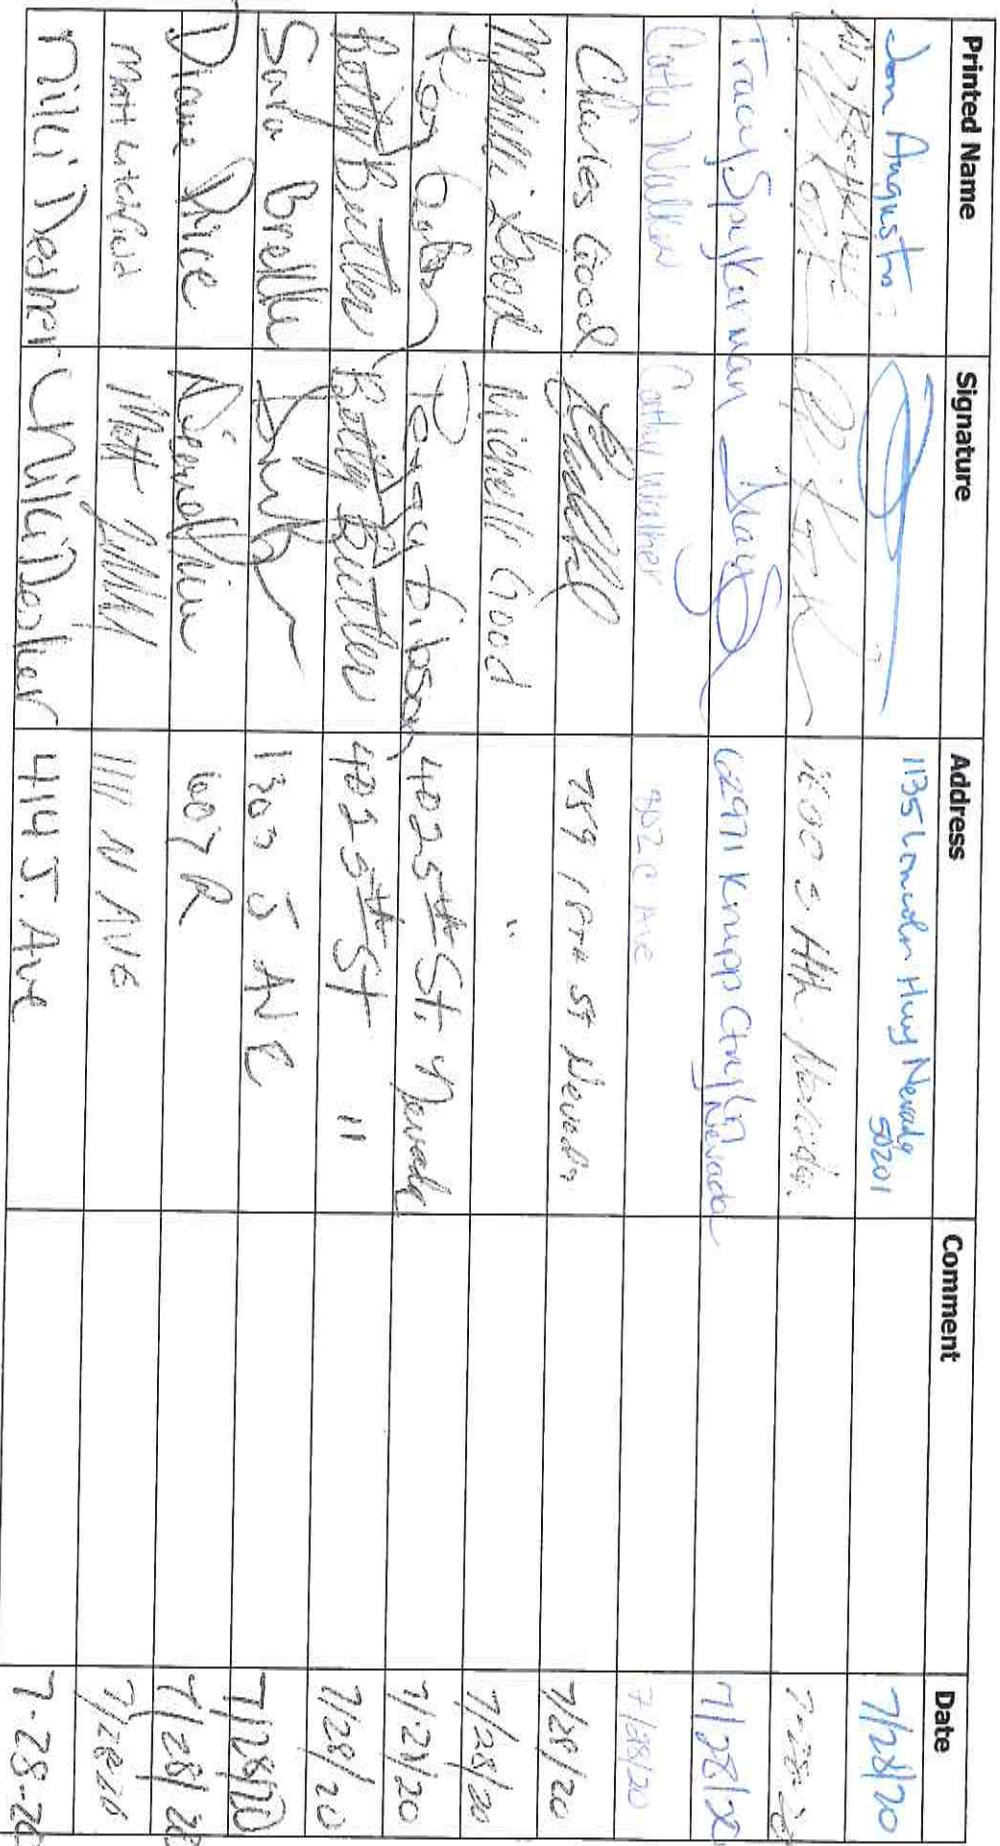 Printed Name Signature Address Comment Date
Jon Angusto 1135 Lincoln Hwy Nevada 50201 7/28/20
Tracy Spykerman Tracy 62971 Krupp Ctry Ln Nevada 7/28/20
Cathy Walker Cathy Walker 802 C Ave 7/28/20
Charles Good 789 18TH St Nevada 7/28/20
Michelle Good Michelle Good " 7/28/20
Peggy Gibson Peggy Gibson 402 5th St. Nevada
Betty Butler Betty Butler 402 5th St 11 7/28/20
Sara 1303 J AVE 7/28/20
Diane Price Diane Price 607 R 7/28/20
Matt Litchfield Matt 1111 N AVE 7/28/20
Milli Desher Milli Desher 414 J. Ave 7-28-20